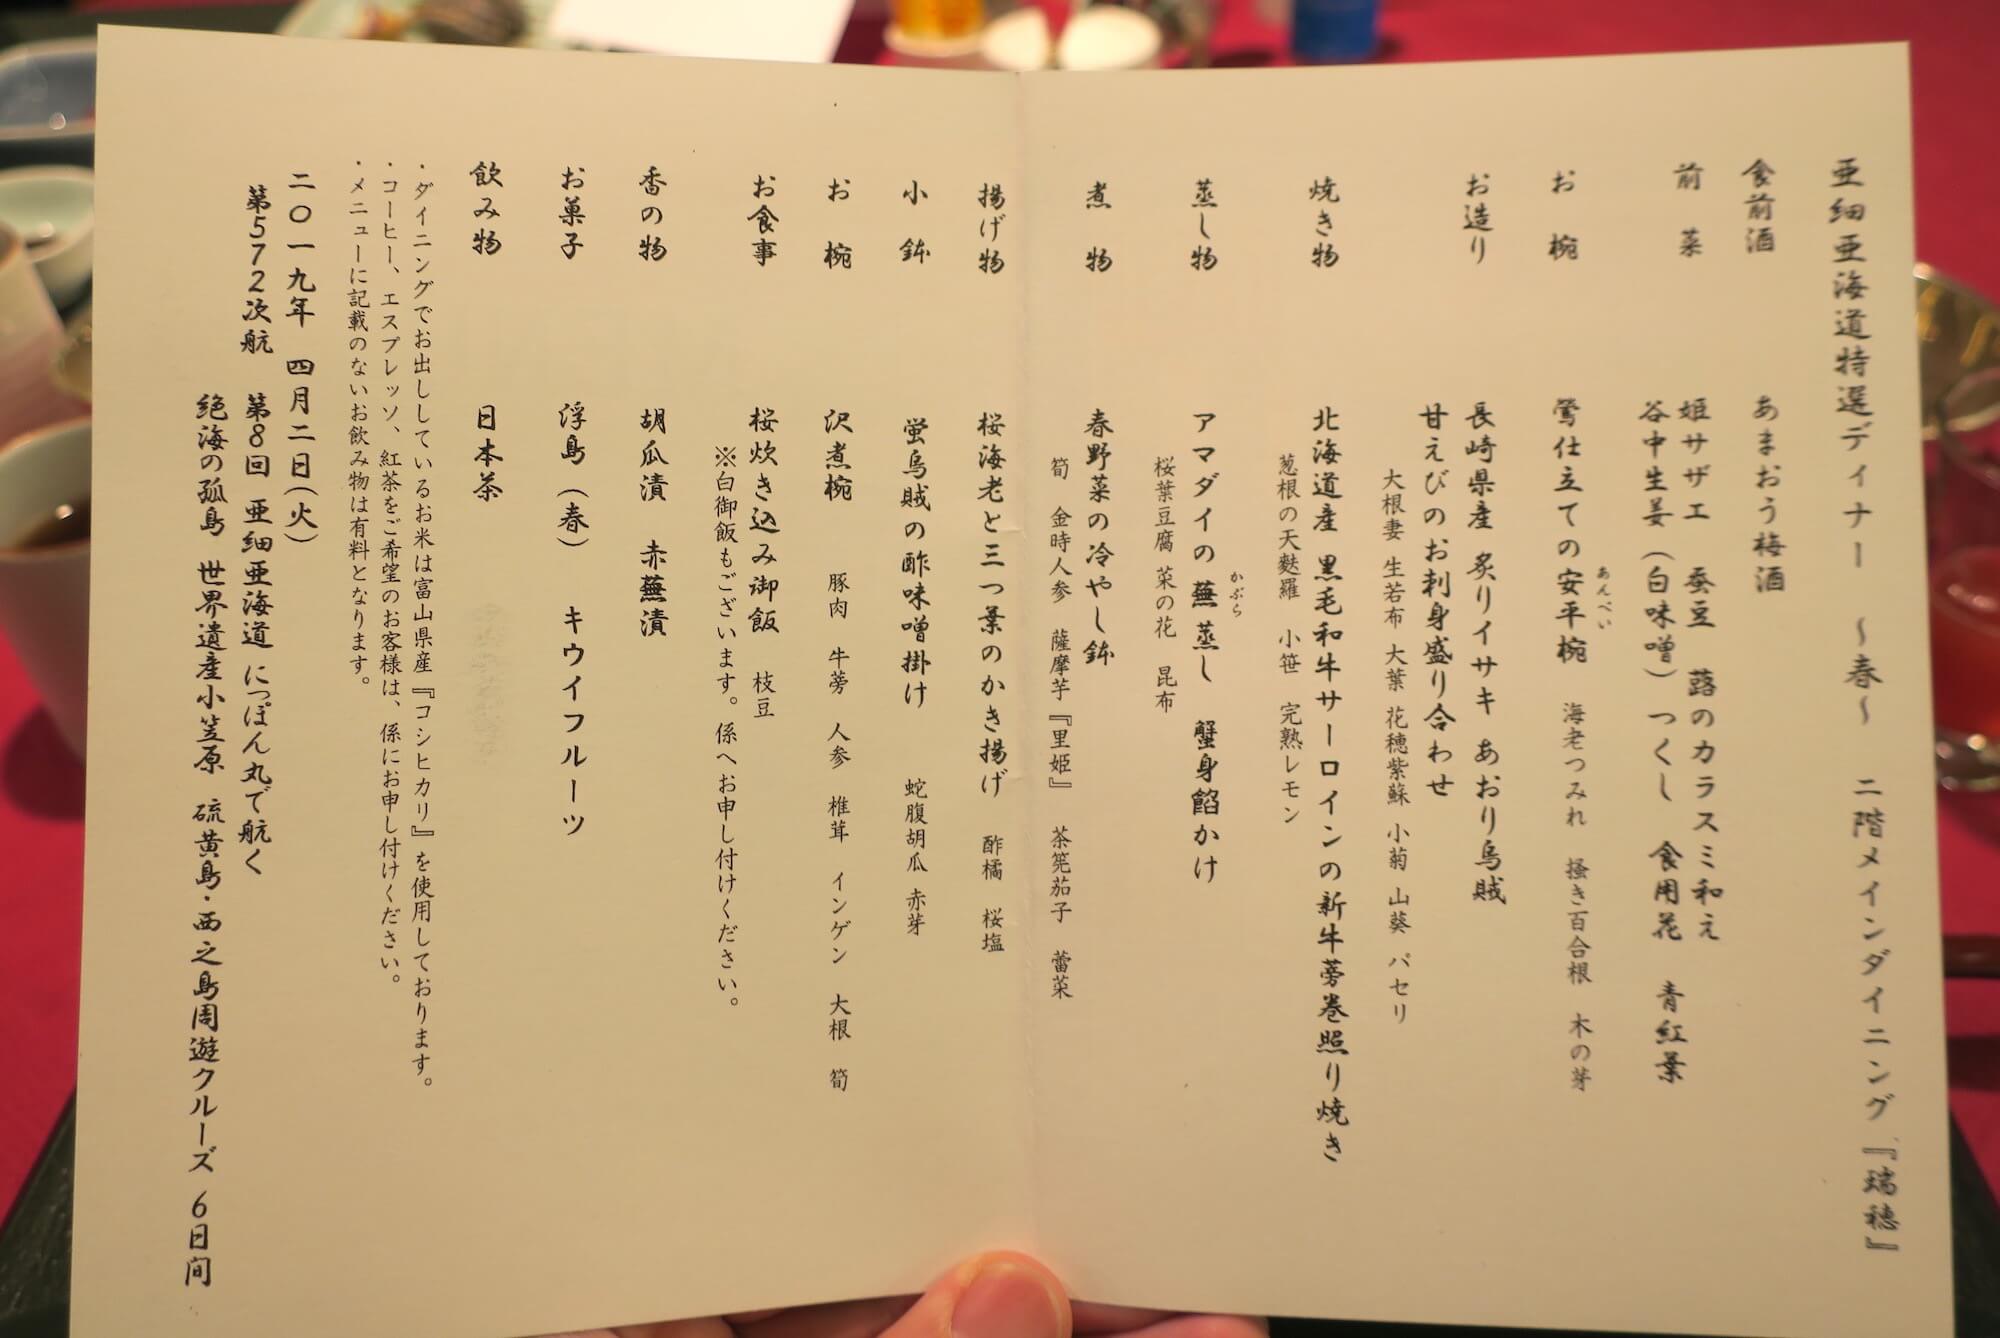 亜細亜海道特選ディナー ～春～ 二階メインダイニング『瑞穂』
食前酒 あまおう梅酒
前菜 姫サザエ 蚕豆 蕗のカラスミ和え
谷中生姜（白味噌）つくし 食用花 青紅葉
お椀 鶯仕立ての安平椀 海老つみれ 掻き百合根 木の芽
あんぺい
お造り 長崎県産 炙りイサキ あおり烏賊
甘えびのお刺身盛り合わせ
大根妻 生若布 大葉 花穂紫蘇 小菊 山葵 パセリ
焼き物 北海道産 黒毛和牛サーロインの新牛蒡巻照り焼き
葱根の天麩羅 小笹 完熟レモン
蒸し物 アマダイの蕪蒸し 蟹身餡かけ
かぶら
桜葉豆腐 菜の花 昆布
煮物 春野菜の冷やし鉢
筍 金時人参 薩摩芋『里姫』 茶筅茄子 蕾菜
揚げ物 桜海老と三つ葉のかき揚げ 酢橘 桜塩
小鉢 蛍烏賊の酢味噌掛け 蛇腹胡瓜 赤芽
お椀 沢煮椀 豚肉 牛蒡 人参 椎茸 インゲン 大根 筍
お食事 桜炊き込み御飯 枝豆
※白御飯もございます。係へお申し付けください。
香の物 胡瓜漬 赤蕪漬
お菓子 浮島（春） キウイフルーツ
飲み物 日本茶
・ダイニングでお出ししているお米は富山県産『コシヒカリ』を使用しております。
・コーヒー、エスプレッソ、紅茶をご希望のお客様は、係にお申し付けください。
・メニューに記載のないお飲み物は有料となります。
二〇一九年 四月二日(火)
第572次航 第8回 亜細亜海道 にっぽん丸で航く
絶海の孤島 世界遺産小笠原 硫黄島・西之島周遊クルーズ 6日間